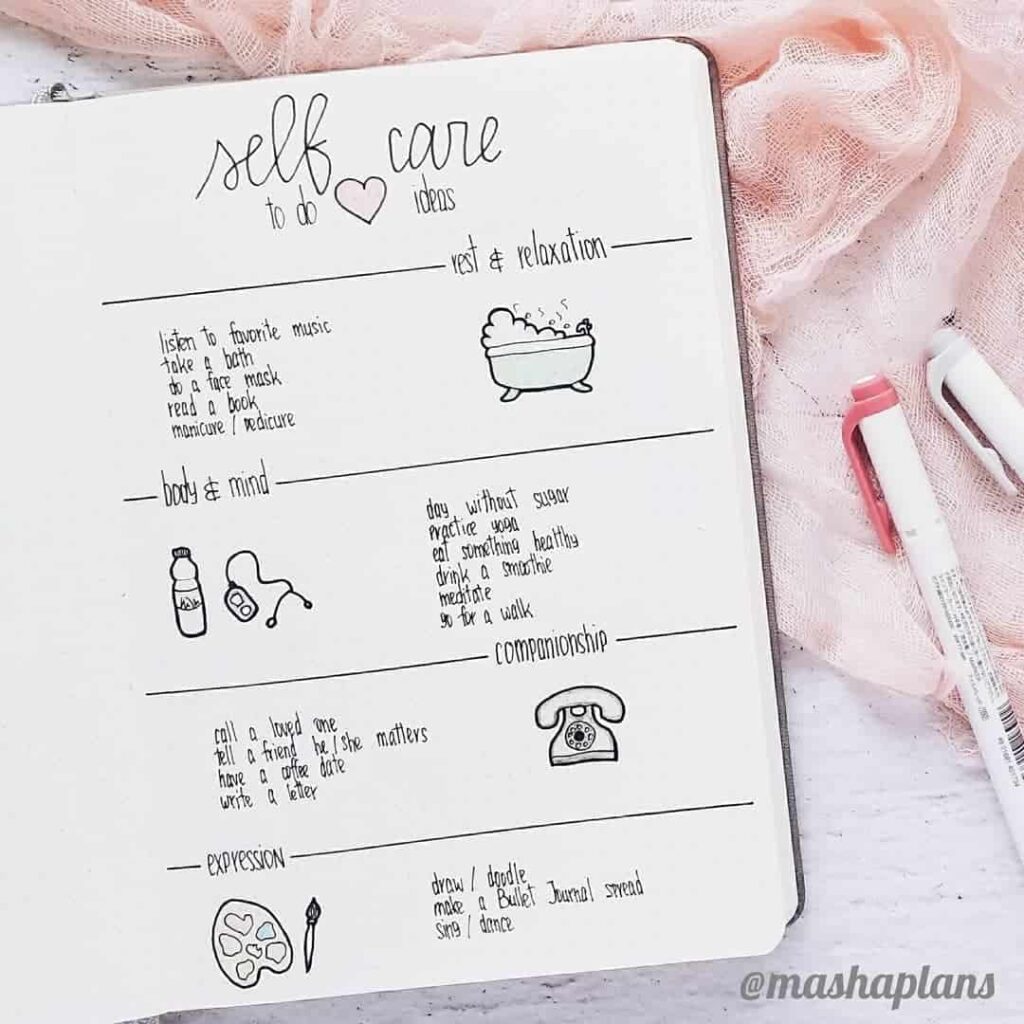 self care
to do ideas
rest & relaxation
listen to favorite music
take a bath
do a face mask
read a book
manicure / pedicure
body & mind
day without sugar
practice yoga
eat something healthy
drink a smoothie
meditate
go for a walk
companionship
call a loved one
tell a friend he/she matters
have a coffee date
write a letter
expression
draw / doodle
make a Bullet Journal spread
sing / dance
@mashaplans